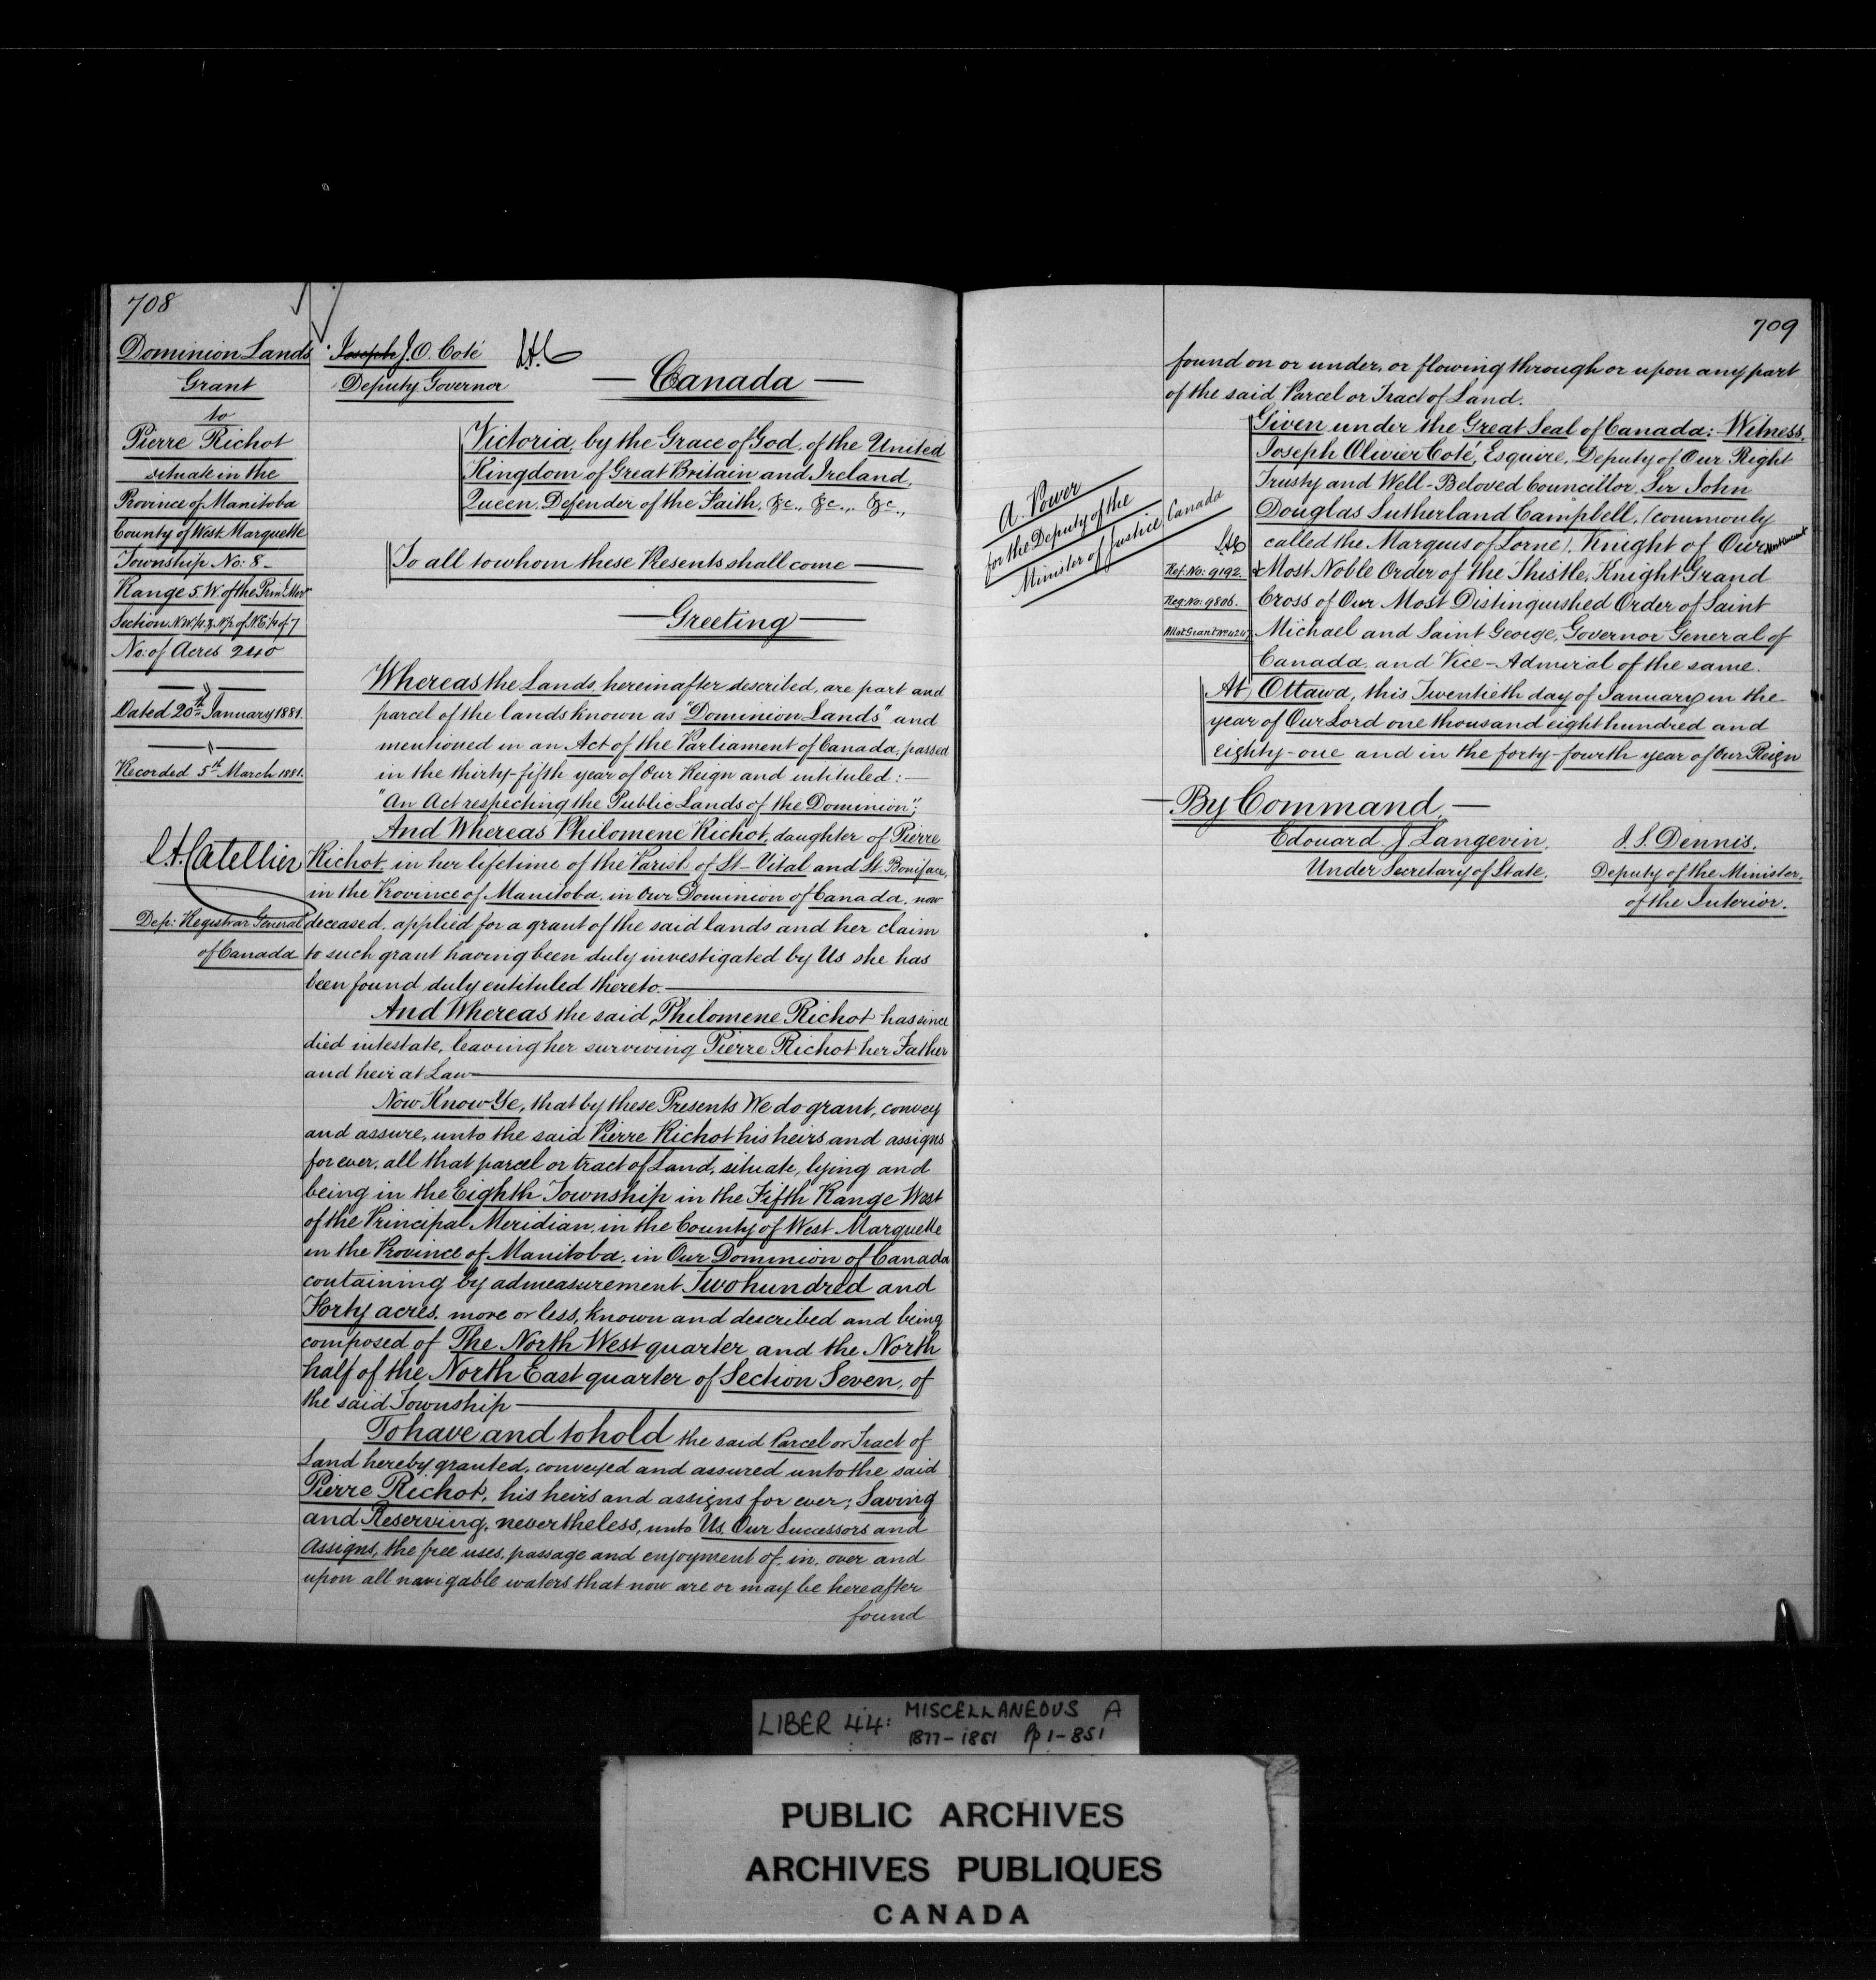 708
Dominion Lands
Grant
to
Pierre Richot
situate in the
Province of Manitoba
County of West Marquette
Township No: 8 -
Range 5. W. of the Prin: Mer
Section N.W¼ & N½ of N.E¼ of 7
No: of Acres 240
Dated 20th January 1881.
Recorded 5th March 1881.
L.A. Catellier
Dep: Registrar General
of Canada
Joseph J. O. Coté
Deputy Governor
— Canada —
Victoria, by the Grace of God, of the United
Kingdom of Great Britain and Ireland,
Queen, Defender of the Faith, &c., &c., &c.,
To all to whom these Presents shall come —
— Greeting —
Whereas the Lands, hereinafter described, are part and
parcel of the lands known as "Dominion Lands" and
mentioned in an Act of the Parliament of Canada, passed
in the thirty-fifth year of Our Reign and intituled: —
"An Act respecting the Public Lands of the Dominion";
And Whereas Philomene Richot, daughter of Pierre
Richot, in her lifetime of the Parish of St-Vital and St. Boniface,
in the Province of Manitoba, in Our Dominion of Canada, now
deceased, applied for a grant of the said lands and her claim
to such grant having been duly investigated by Us she has
been found duly entituled thereto. —
And Whereas the said, Philomene Richot has since
died intestate, leaving her surviving Pierre Richot her Father
and heir at Law —
Now Know Ye, that by these Presents We do grant, convey
and assure, unto the said Pierre Richot his heirs and assigns
for ever, all that parcel or tract of Land, situate, lying and
being in the Eighth Township in the Fifth Range West
of the Principal Meridian, in the County of West Marquette
in the Province of Manitoba, in Our Dominion of Canada
containing by admeasurement Two hundred and
Forty acres, more or less, known and described and being
composed of The North West quarter and the North
half of the North East quarter of Section Seven, of
the said Township —
To have and to hold the said Parcel or Tract of
Land hereby granted, conveyed and assured unto the said
Pierre Richot, his heirs and assigns for ever; Saving
and Reserving, nevertheless, unto Us, Our Successors and
Assigns, the free uses, passage and enjoyment of, in, over and
upon all navigable waters that now are or may be hereafter
found
709
found on or under, or flowing through or upon any part
of the said Parcel or Tract of Land.
Given under the Great Seal of Canada: Witness,
Joseph Olivier Coté, Esquire, Deputy of Our Right
Trusty and Well-Beloved Councillor, Sir John
Douglas Sutherland Campbell, (commonly
called the Marquis of Lorne), Knight of Our
Most Noble Order of the Thistle, Knight Grand
Cross of Our Most Distinguished Order of Saint
Michael and Saint George, Governor General of
Canada, and Vice-Admiral of the same.
At Ottawa, this Twentieth day of January in the
year of Our Lord one thousand eight hundred and
eighty-one and in the forty-fourth year of Our Reign
A. Power
for the Deputy of the
Minister of Justice, Canada
Ref. No: 9192.
Reg: No: 9806.
— By Command, —
Edouard J Langevin,
Under Secretary of State.
J. S. Dennis,
Deputy of the Minister,
of the Interior.
LIBER 44: MISCELLANEOUS A
1877-1881 Pp 1-851
PUBLIC ARCHIVES
ARCHIVES PUBLIQUES
CANADA